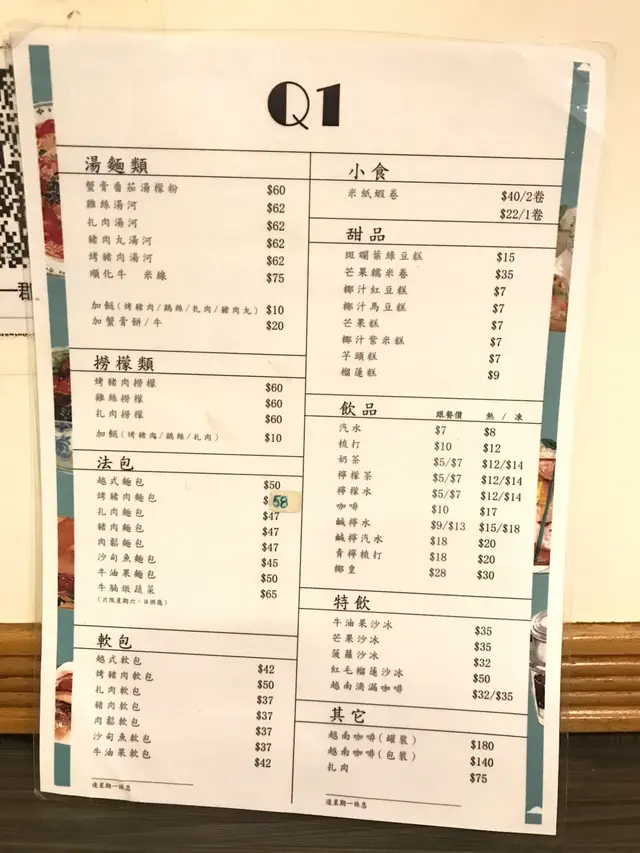 Q1
湯麵類
蟹膏番茄湯檬粉 $60
雞絲湯河 $62
扎肉湯河 $62
豬肉丸湯河 $62
烤豬肉湯河 $62
順化牛 米線 $75
加餸(烤豬肉/鷄絲/扎肉/豬肉丸) $10
加蟹膏餅/牛 $20
撈檬類
烤豬肉撈檬 $60
雞絲撈檬 $60
扎肉撈檬 $60
加餸(烤豬肉/鷄絲/扎肉) $10
法包
越式麵包 $50
烤豬肉麵包 $58
扎肉麵包 $47
豬肉麵包 $47
肉鬆麵包 $47
沙甸魚麵包 $45
牛油果麵包 $50
牛腩燉蔬菜 $65
(只限星期六,日供應)
軟包
越式軟包 $42
烤豬肉軟包 $50
扎肉軟包 $37
豬肉軟包 $37
肉鬆軟包 $37
沙甸魚軟包 $37
牛油果軟包 $42
逢星期一休息
小食
米紙蝦卷 $40/2卷
$22/1卷
甜品
斑斕葉綠豆糕 $15
芒果糯米卷 $35
椰汁紅豆糕 $7
椰汁馬豆糕 $7
芒果糕 $7
椰汁紫米糕 $7
芋頭糕 $7
榴蓮糕 $9
飲品 跟餐價 熱/凍
汽水 $7 $8
梳打 $10 $12
奶茶 $5/$7 $12/$14
檸檬茶 $5/$7 $12/$14
檸檬水 $5/$7 $12/$14
咖啡 $10 $17
鹹檸水 $9/$13 $15/$18
鹹檸汽水 $18 $20
青檸梳打 $18 $20
椰皇 $28 $30
特飲
牛油果沙冰 $35
芒果沙冰 $35
菠蘿沙冰 $32
紅毛榴蓮沙冰 $50
越南滴漏咖啡 $32/$35
其它
越南咖啡(罐裝) $180
越南咖啡(包裝) $140
扎肉 $75
逢星期一休息
一群